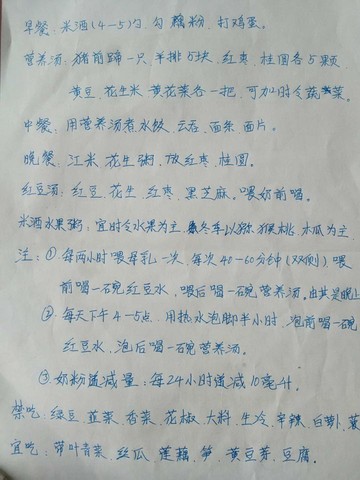 早餐：米酒(4-5)勺 勾藕粉、打鸡蛋。
营养汤：猪前蹄一只、羊排5块、红枣、桂圆各5颗
黄豆、花生米 黄花菜各一把、可加时令蔬菜。
中餐：用营养汤煮水饺、云吞、面条、面片。
晚餐：江米、花生粥、放红枣、桂圆。
红豆汤：红豆、花生、红枣、黑芝麻。喂奶前喝。
米酒水果粥：宜时令水果为主、冬季以猕猴桃、木瓜为主
注：①每两小时喂母乳一次、每次40-60分钟(双侧)、喂
前喝一碗红豆水、喂后喝一碗营养汤。由其是晚上
②、每天下午4-5点、用热水泡脚半小时、泡前喝一碗
红豆水、泡后喝一碗营养汤。
③奶粉递减量：每24小时递减10毫升。
禁吃：绿豆、韭菜、香菜、花椒、大料、生冷、辛辣、白萝卜、
宜吃：带叶青菜、丝瓜、莲藕、笋、黄豆芽、豆腐。